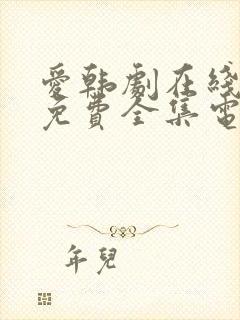 愛韩劇在綫
免費全集電
年兒